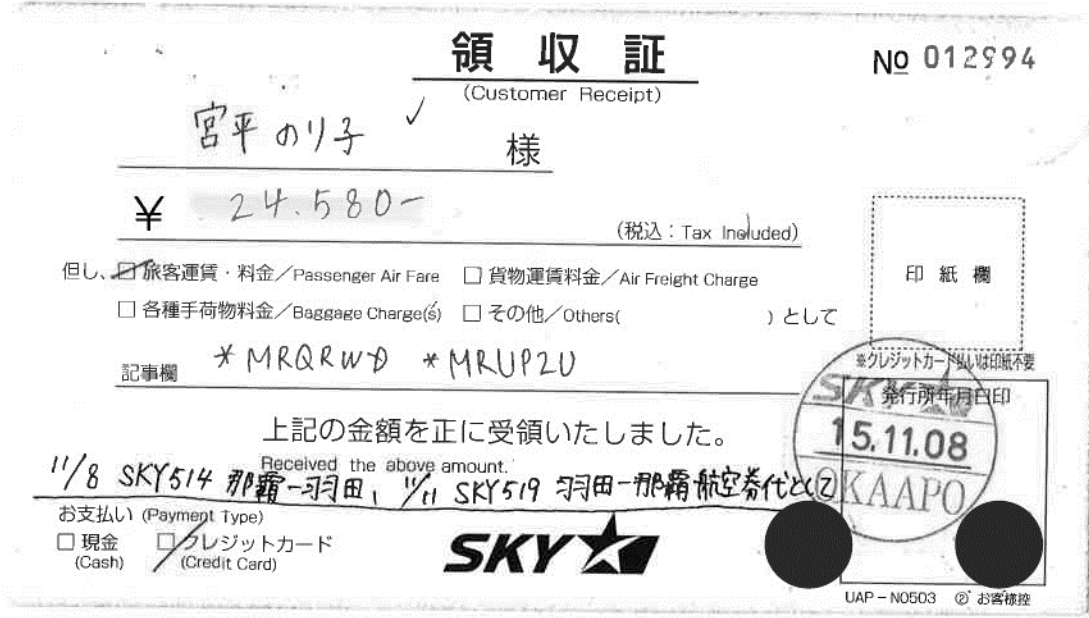 領収証
No 012994
(Customer Receipt)
宮平のり子 様
¥ 24.580-
(税込:Tax Included)
但し、☑旅客運賃・料金/Passenger Air Fare □貨物運賃料金/Air Freight Charge
印紙欄
□各種手荷物料金/Baggage Charge(s) □その他/Others( )として
記事欄 *MRQRWD *MRUP2U
※クレジットカード払いは印紙不要
発行所年月日印
SKY
15.11.08
OKAAPO
上記の金額を正に受領いたしました。
Received the above amount.
11/8 SKY514 那覇-羽田、11/11 SKY519 羽田-那覇 航空券代として
お支払い (Payment Type)
□現金 ☑クレジットカード
(Cash) (Credit Card)
SKY
UAP-N0503 ② お客様控